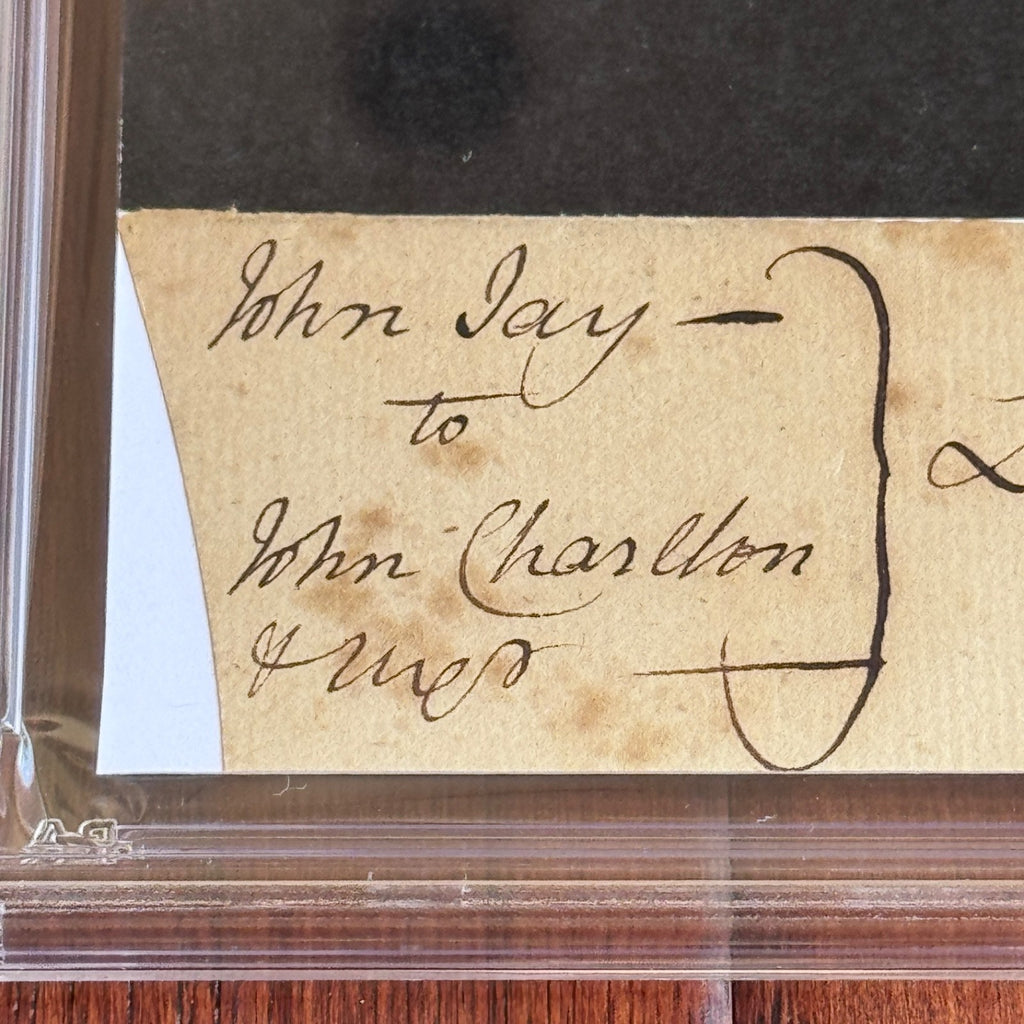 John Jay —
to
John Charlton
&